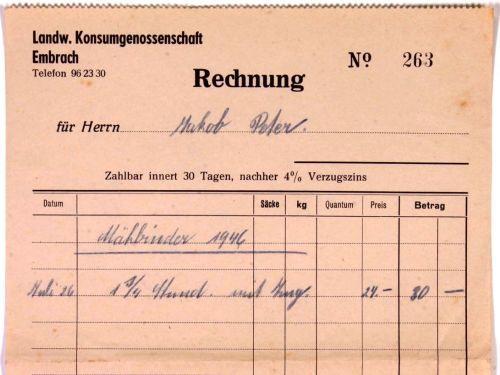 Landw. Konsumgenossenschaft
Embrach
Telefon 96 23 30
Nº 263
Rechnung
für Herrn Jakob Peter.
Zahlbar innert 30 Tagen, nachher 4% Verzugszins
Datum Säcke kg Quantum Preis Betrag
Mähbinder 1946
Juli 26 1 3/4 Stund. mit 24.- 30 —